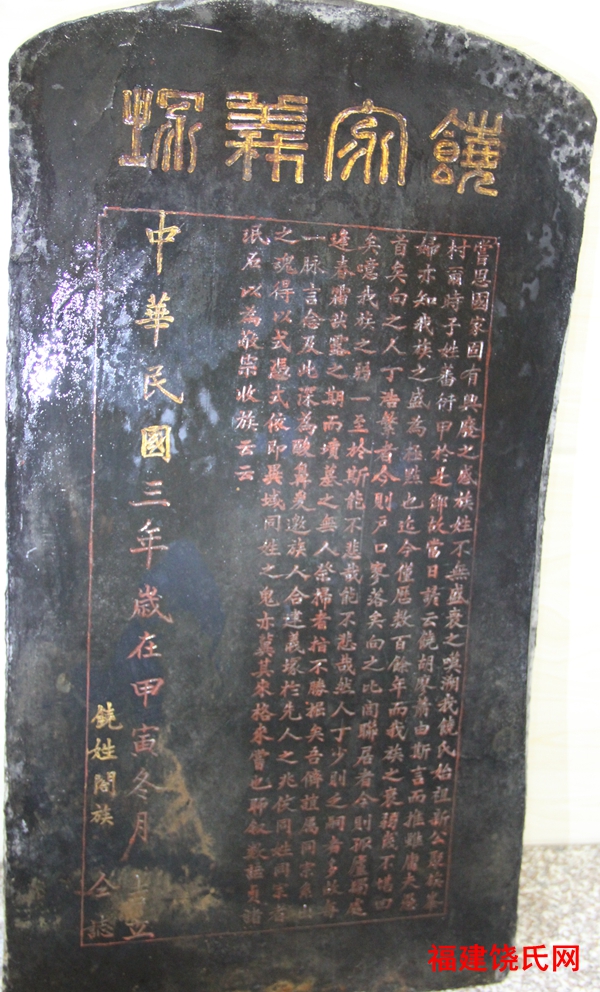 饒家義塚
嘗思國家固有興廢之感族姓不無盛衰之嘆溯我饒氏始祖新公聚族茶
村爾時子姓蕃衍甲於是鄉故當日諺云饒胡廖蕭由斯言而推雖庸夫愚
婦亦知我族之盛為極點也迄今僅歷數百餘年而我族之衰頹幾不堪回
首矣向之人丁浩繁者今則戶口寥落矣向之比閭聯居者今則孤廬獨處
矣噫我族之弱一至於斯能不悲哉能不悲哉然人丁少則乏嗣者多故每
逢春霜秋露之期而墳墓之無人祭掃者指不勝掘矣吾儕誼屬同宗系出
一脉言念及此深為酸鼻爰邀族人合建義塚於先人之兆使同姓同宗者
之魂得以式憑式依即異域同姓之鬼亦冀其來格來嘗也聊叙數語貞諸
珉石以為敬宗收族云云
中華民國三年歲在甲寅冬月 立
饒姓閤族 仝誌
福建饶氏网